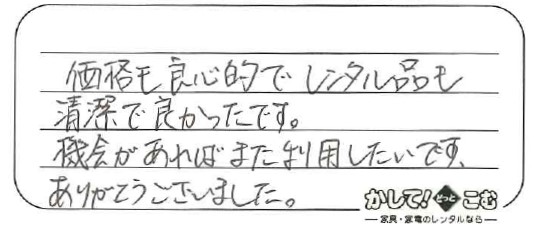 価格も良心的でレンタル品も
清潔で良かったです。
機会があればまた利用したいです、
ありがとうございました。
かして!どっとこむ
家具・家電のレンタルなら